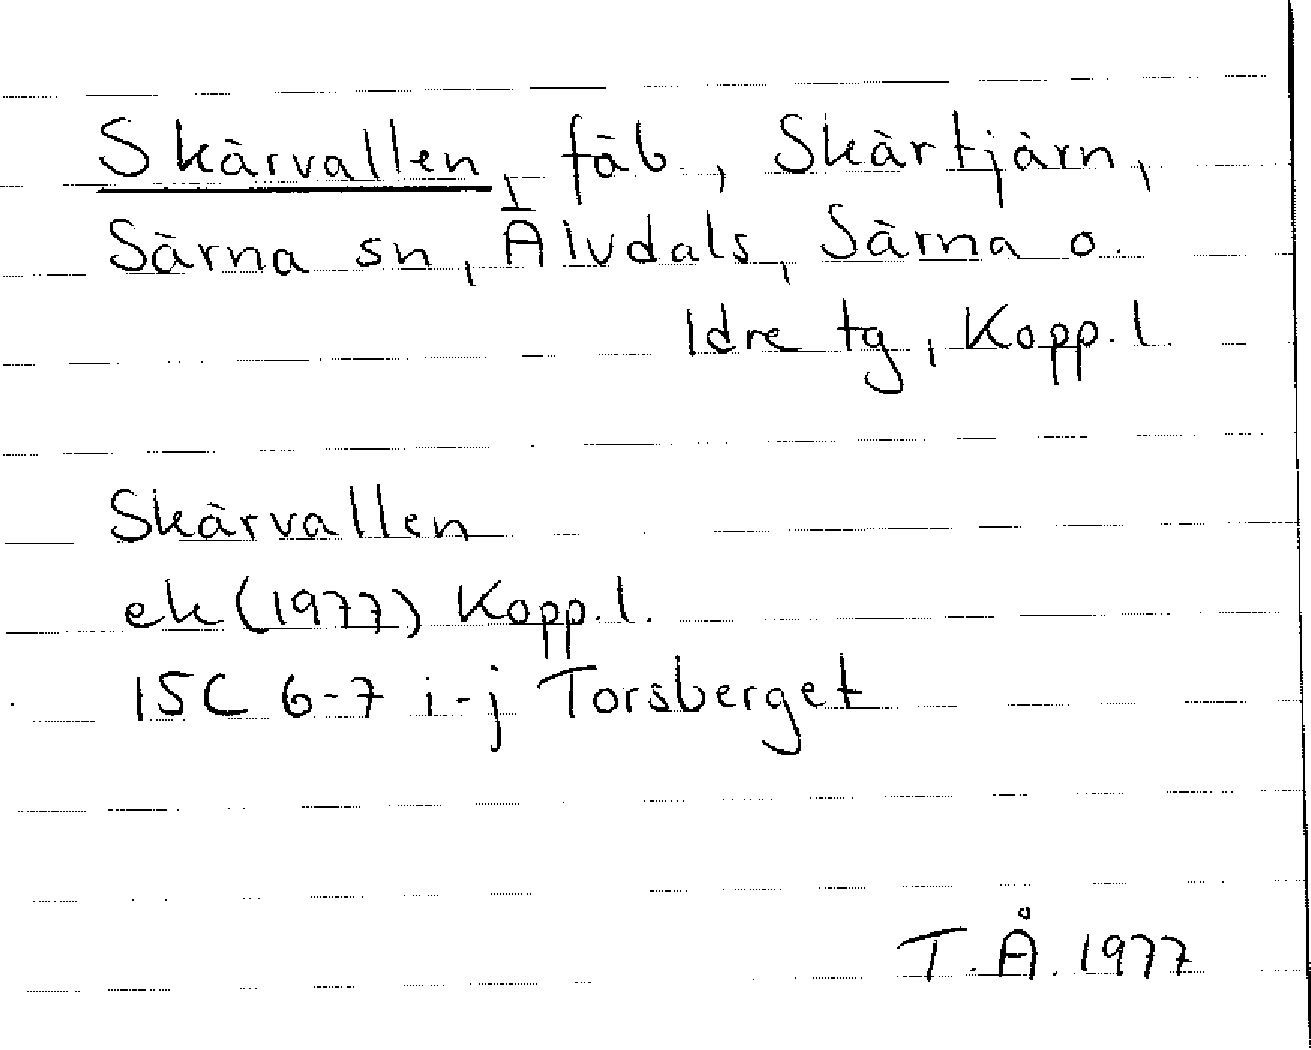 Skärvallen, fäb., Skärtjärn,
Särna sn, Älvdals, Särna o.
Idre tg, Kopp. l.
Skärvallen
ek (1977) Kopp. l.
15C 6-7 i-j Torsberget
T.Å. 1977